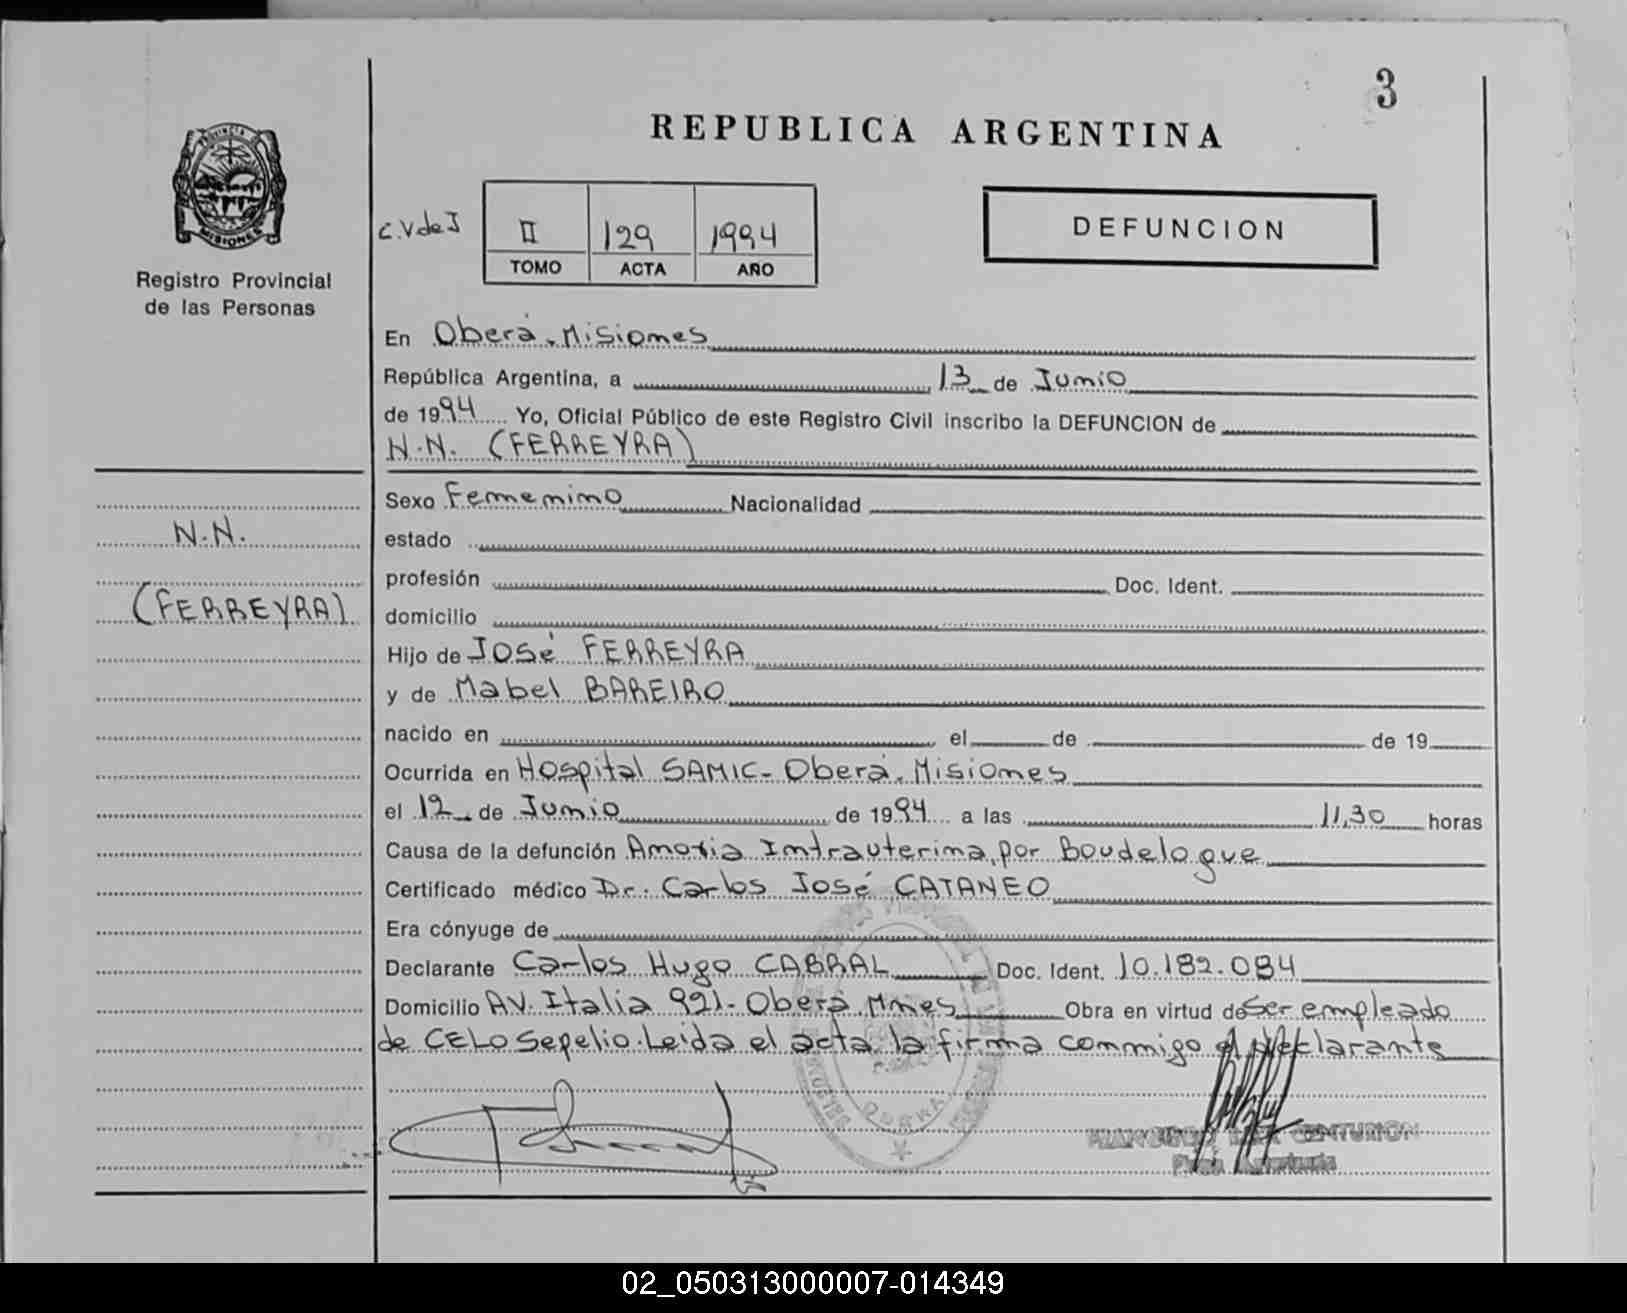 3
REPUBLICA ARGENTINA
PROVINCIA
MISIONES
Registro Provincial
de las Personas
C.V de J
II 129 1994
TOMO ACTA AÑO
DEFUNCION
En Oberá, Misiones
República Argentina, a 13 de Junio
de 1994 Yo, Oficial Público de este Registro Civil inscribo la DEFUNCION de
N.N. (FERREYRA)
N.N.
(FERREYRA)
Sexo Femenino Nacionalidad
estado
profesión Doc. Ident.
domicilio
Hijo de José FERREYRA
y de Mabel BAREIRO
nacido en el de de 19
Ocurrida en Hospital SAMIC- Oberá, Misiones
el 12 de Junio de 1994 a las 11,30 horas
Causa de la defunción Anoxia Intrauterina, por Boudeloque
Certificado médico Dr. Carlos José CATANEO
Era cónyuge de
Declarante Carlos Hugo CABRAL Doc. Ident. 10.182.084
Domicilio AV. Italia 921- Oberá, Mnes Obra en virtud de Ser empleado
de CELO Sepelio. Leida el acta, la firma conmigo el declarante
OBERA
CENTURION
02_050313000007-014349